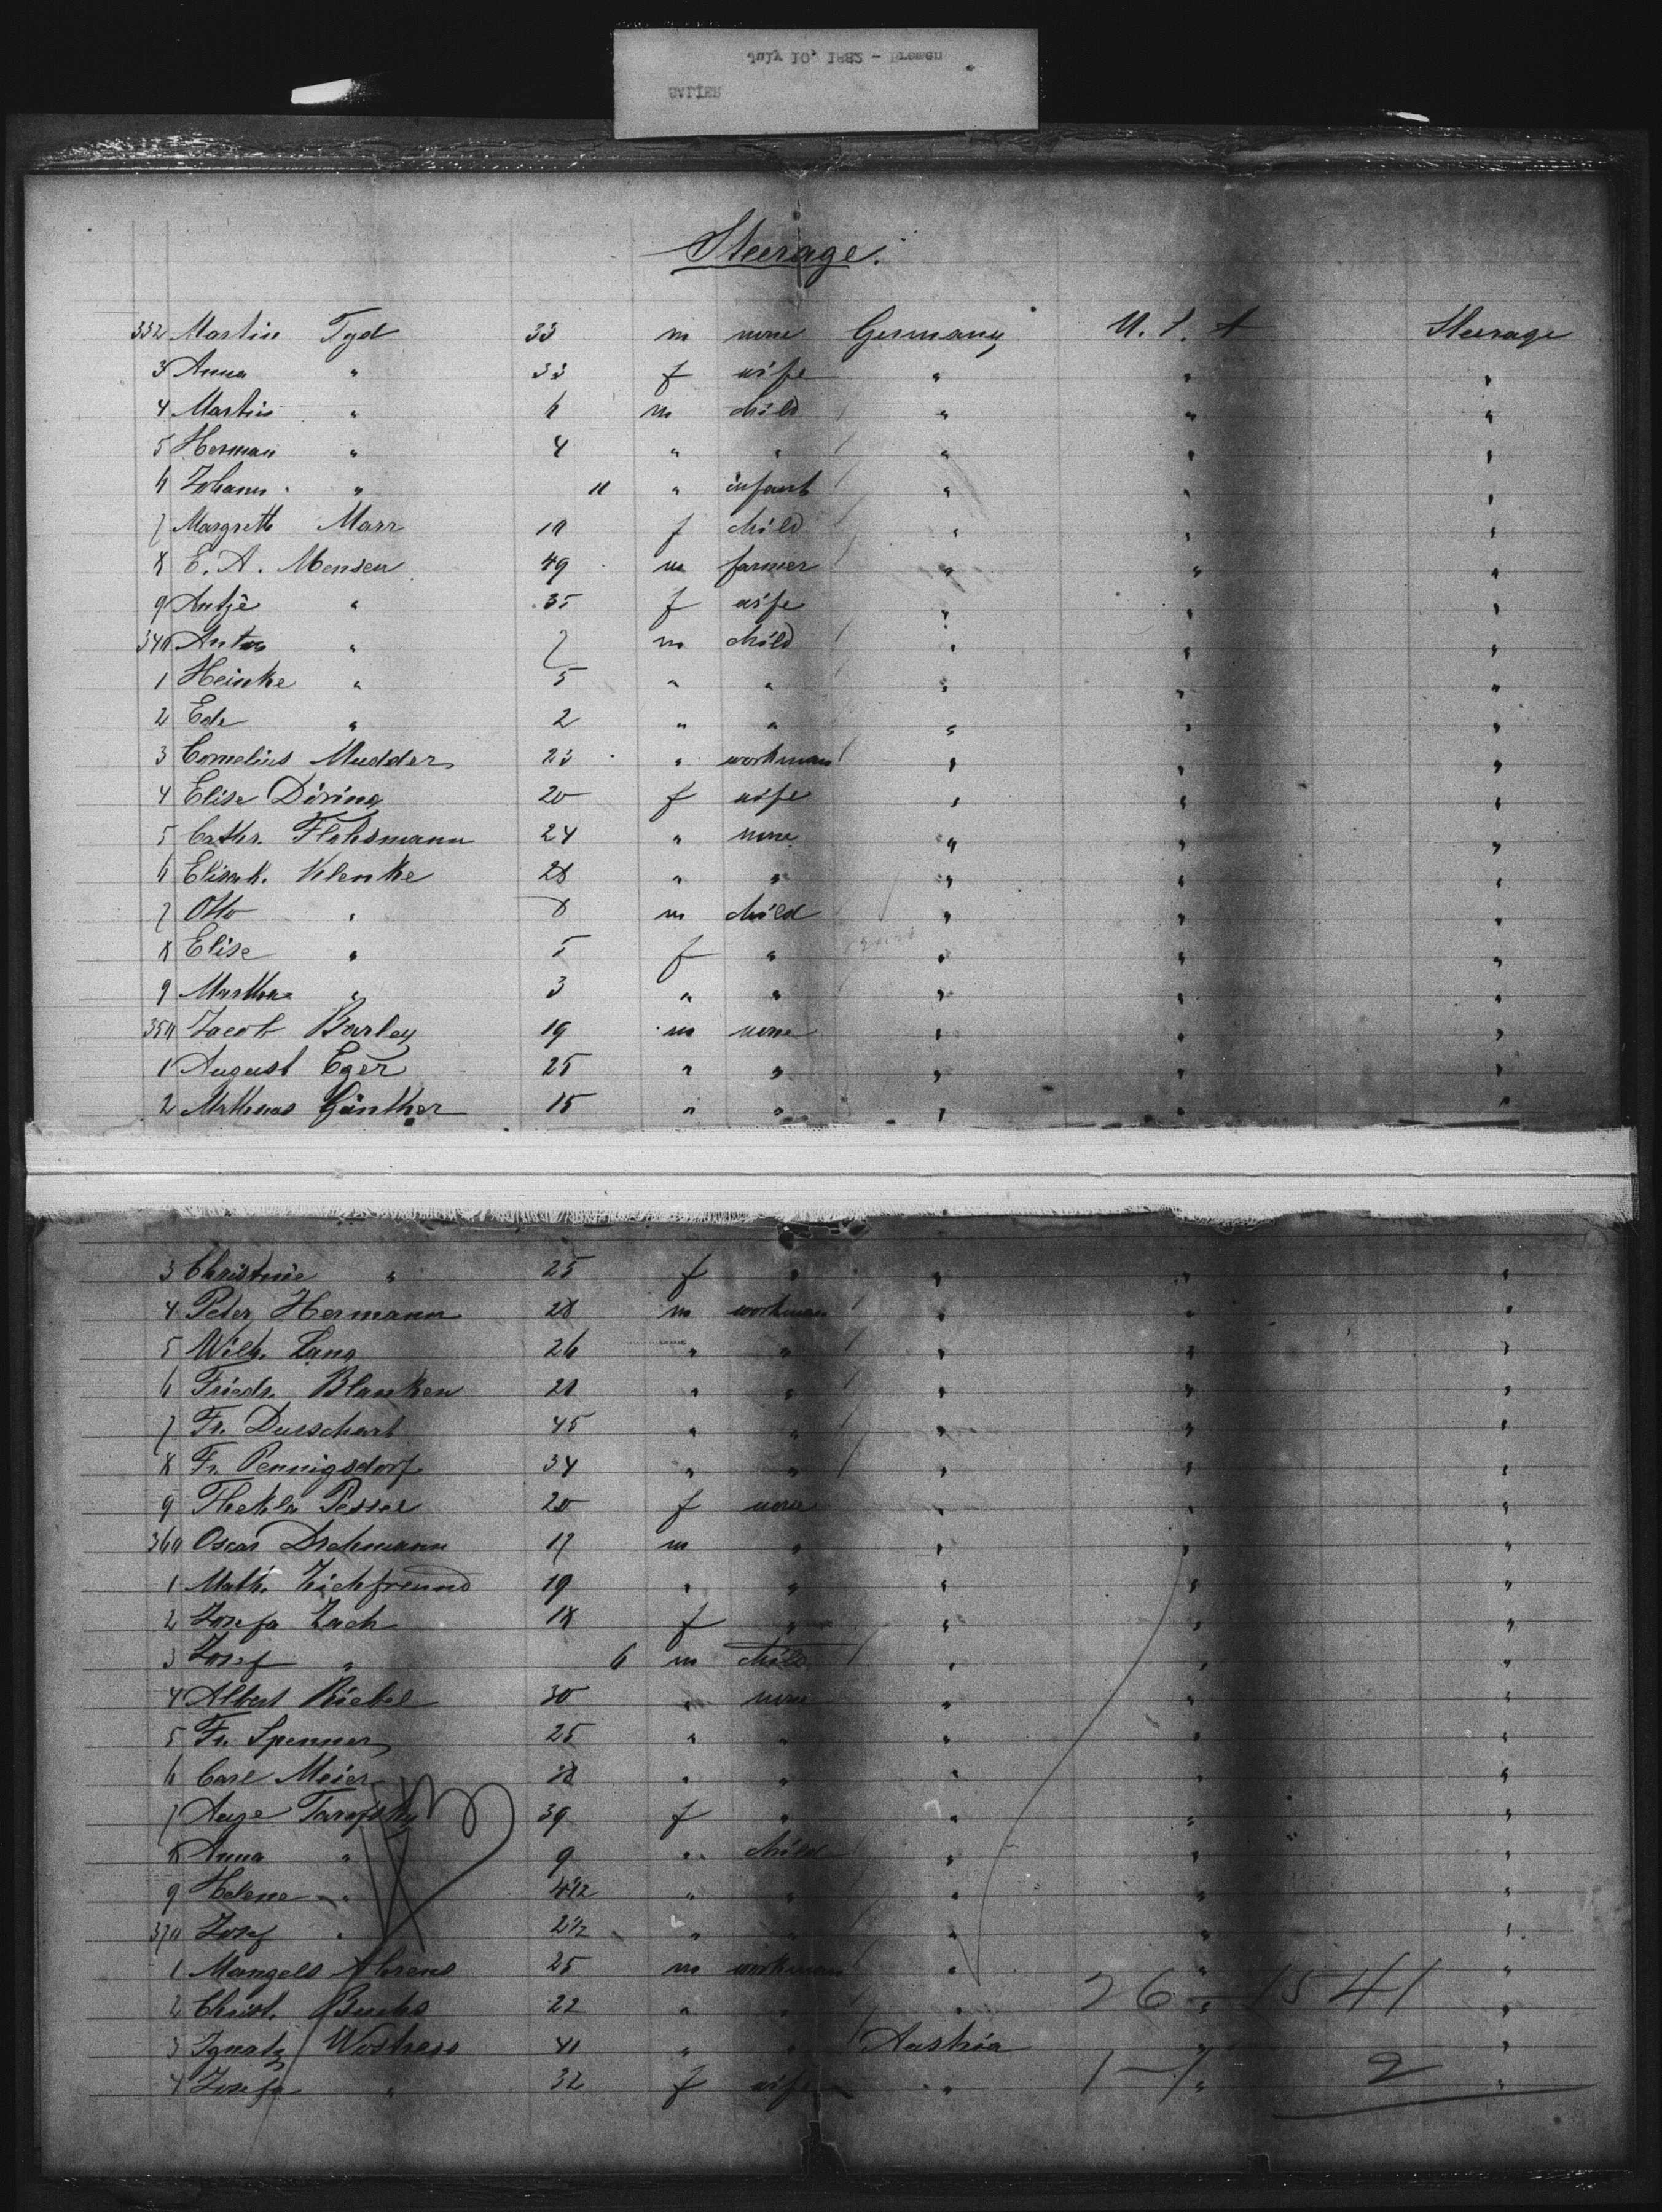 July 10, 1882 - Bremen
Steerage.
332 Martin Tyd 33 m none Germany U. S. A Steerage
3 Anna " 33 f wife " " "
4 Martin " 6 m child " " "
5 Herman " 4 " " " " "
6 Johann " 11 " infant " " "
7 Margreth Marr 10 f child " " "
8 E. A. Mensen 49 m farmer " " "
9 Antje " 35 f wife " " "
340 Anton " 7 m child " " "
1 Heinke " 5 " " " " "
2 Ede " 2 " " " " "
3 Cornelius Mudder 23 " workman " " "
4 Elise Döring 20 f wife " " "
5 Cathr. Flohsmann 24 " none " " "
6 Elisab. Klenke 28 " " " " "
7 Otto " 8 m child " " "
8 Elise " 5 f " " " "
9 Martha " 3 " " " " "
350 Jacob Barley 19 m none " " "
1 August Eger 25 " " " " "
2 Mathias Günther 15 " " " " "
3 Christine " 25 f " " " "
4 Peter Hermann 28 m workman " " "
5 Wilh. Lang 26 " " " " "
6 Friedr. Blanken 21 " " " " "
7 Fr. Durschart 45 " " " " "
8 Fr. Pennigsdorf 34 " " " " "
9 Thekla Pesser 20 f none " " "
360 Oscar Drehmann 17 m " " " "
1 Math. Eichfreund 19 " " " " "
2 Josefa Zach 18 f " " " "
3 Josef " 6 m child " " "
4 Albert Riebel 30 " none " " "
5 Fr. Spenner 25 " " " " "
6 Carl Meier 18 " " " " "
7 39 f " " " "
8 Anna " 9 " child " " "
9 Helene " 4 1/2 " " " " "
370 Josef " 2 1/2 " " " " "
1 Mangels Ahrens 25 m workman " " "
2 Christ. 22 " " " " "
26 - 15 41
3 Ignatz Wostress 41 " " Austria " "
4 Josefa " 32 f wife " " "
1 - 1 2